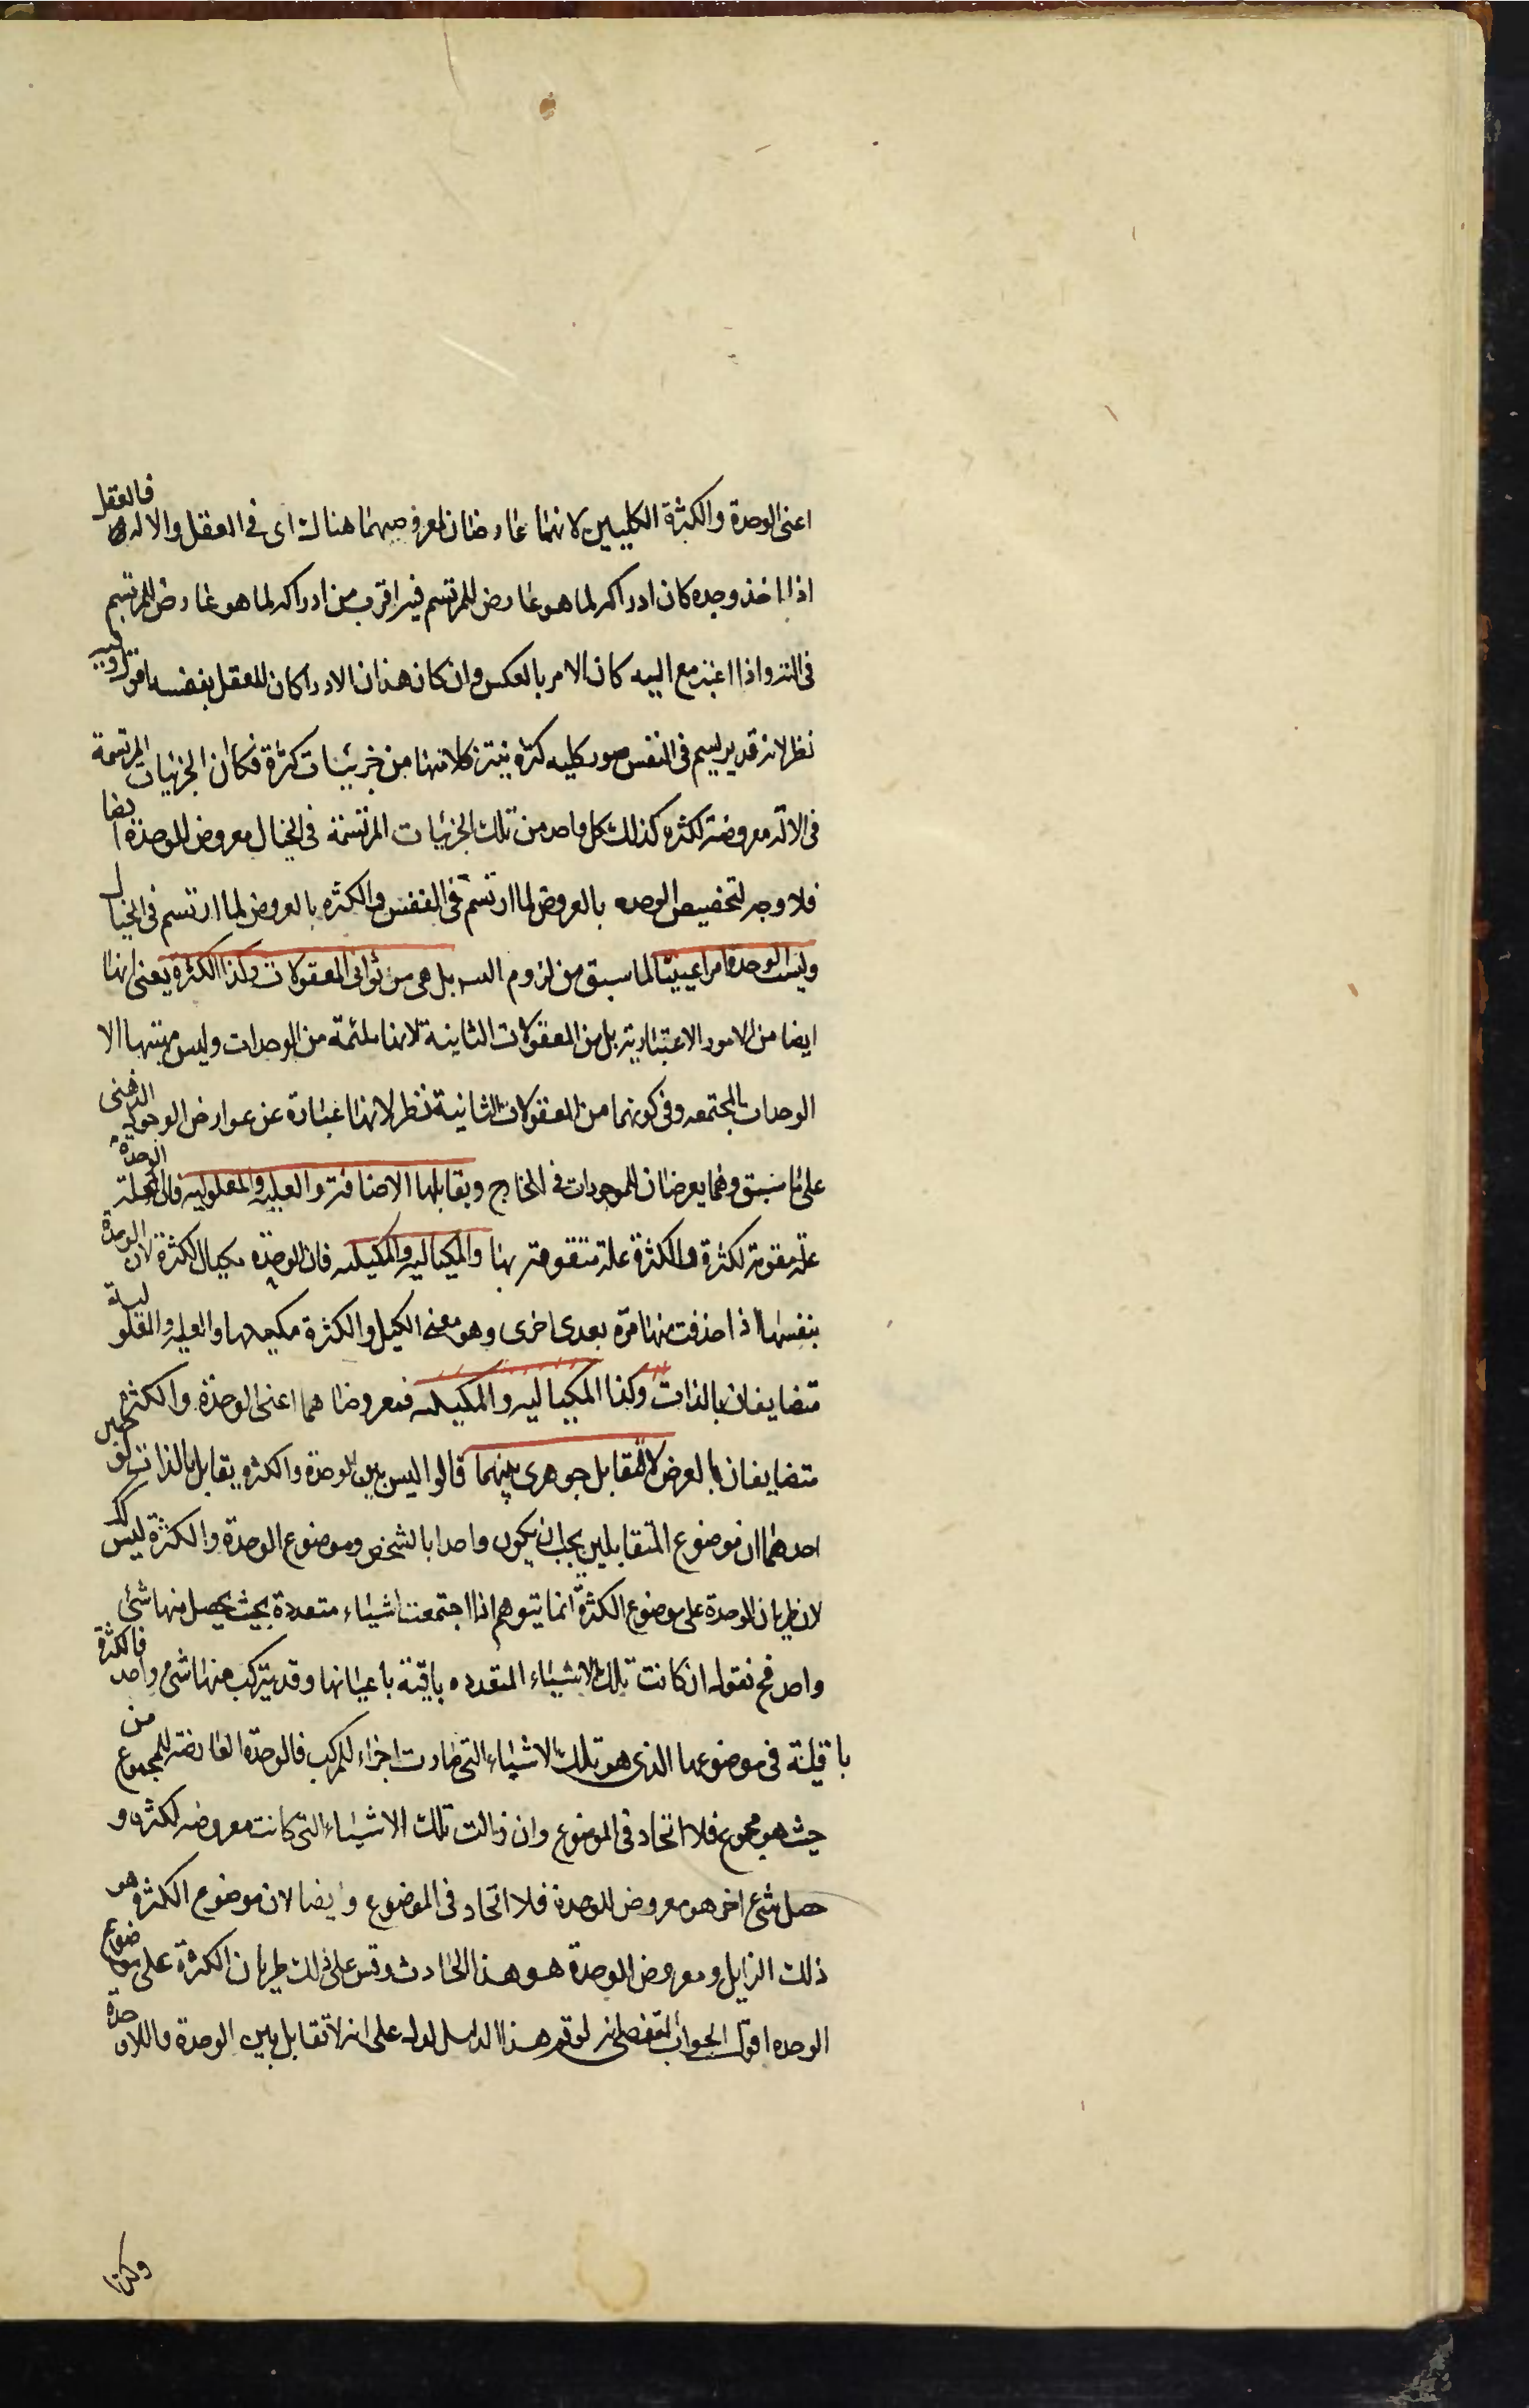 اعنى الوحدة والكثرة الكليين لانهما عارضان لمعروضيهما هناك اى فى العقل والاله فالعقل
اذا اخذ وحده كان ادراكه لما هو عارض للمرتسم فيه اقرب من ادراكه لما هو عارض للمرتسم
فى التر واذا اعتبر مع اليه كان الامر بالعكس وان كان هذان الادراكان للعقل بنفسه اقول وفيه
نظر لانه قد يرتسم فى النفس صور كليه كثره ينتزع كلا منها من جزئيات كثرة فكما ان الجزئيات المرتسمة
فى الاله معروضة لكثره كذلك كل واحد من تلك الجزئيات المرتسمة فى الخيال معروض للوحدة ايضا
فلا وجه لتخصيص الوحده بالعروض لما ارتسم فى النفس والكثره بالعروض لما ارتسم فى الخيال
وليست الوحدة امرا عينيا لما سبق من لزوم التسه بل هى من ثوانى المعقولات وكذا الكثرة يعنى انها
ايضا من الامور الاعتبارية بل من المعقولات الثانية لانها ملتئمة من الوحدات وليس مهيتها الا
الوحدات المجتمعه وفى كونهما من المعقولات الثانية نظر لانها عبارة عن عوارض الوجود الذهنى
على ما سبق وهما يعرضان للموجودات فى الخارج وتقابلهما الاضافة والعليه والمعلوليه فان الوحدة علة
علة مقومة لكثرة والكثرة علة متقومة بها والمكياليه والمكيليه فان الوحدة مكيال الكثرة لان الوحدة
بنفسها اذا حذفت منها مرة بعد اخرى وهو معنى الكيل والكثرة مكيله بها والعليه والمعلولية
متضايفان بالذات وكذا المكياليه والمكيليه فمعروضاهما اعنى الوحدة والكثرة
متضايفان بالعرض لا لتقابل جوهرى بينهما قالوا ليس بين الوحدة والكثره تقابل بالذات لوجهين
احدهما ان موضوع المتقابلين يجب ان يكون واحدا بالشخص وموضوع الوحدة والكثرة ليس كك
لان طريان الوحدة على موضوع الكثرة انما يتوهم اذا اجتمعت اشياء متعددة بحيث يحصل منها شئ
واحد فح نقول ان كانت تلك الاشياء المتعدده باقية باعيانها وقد يتركب منها شئ واحد فالكثرة
باقية فى موضوعها الذى هو تلك الاشياء التى صارت اجزاء للمركب فالوحدة العارضة للمجموع من
حيث هو مجموع فلا اتحاد فى الموضوع وان زالت تلك الاشياء التى كانت معروضه لكثره و
حصل شئ اخر هو معروض للوحدة فلا اتحاد فى الموضوع وايضا لان موضوع الكثرة هو
ذلك الزايل ومعروض الوحدة هو هذا الحادث وقس على ذلك طريان الكثرة على موضوع
الوحده اقول الجواب النقض انه لو تم هذا الدليل لدل على انه لا تقابل بين الوحدة واللاوحدة
وكذا